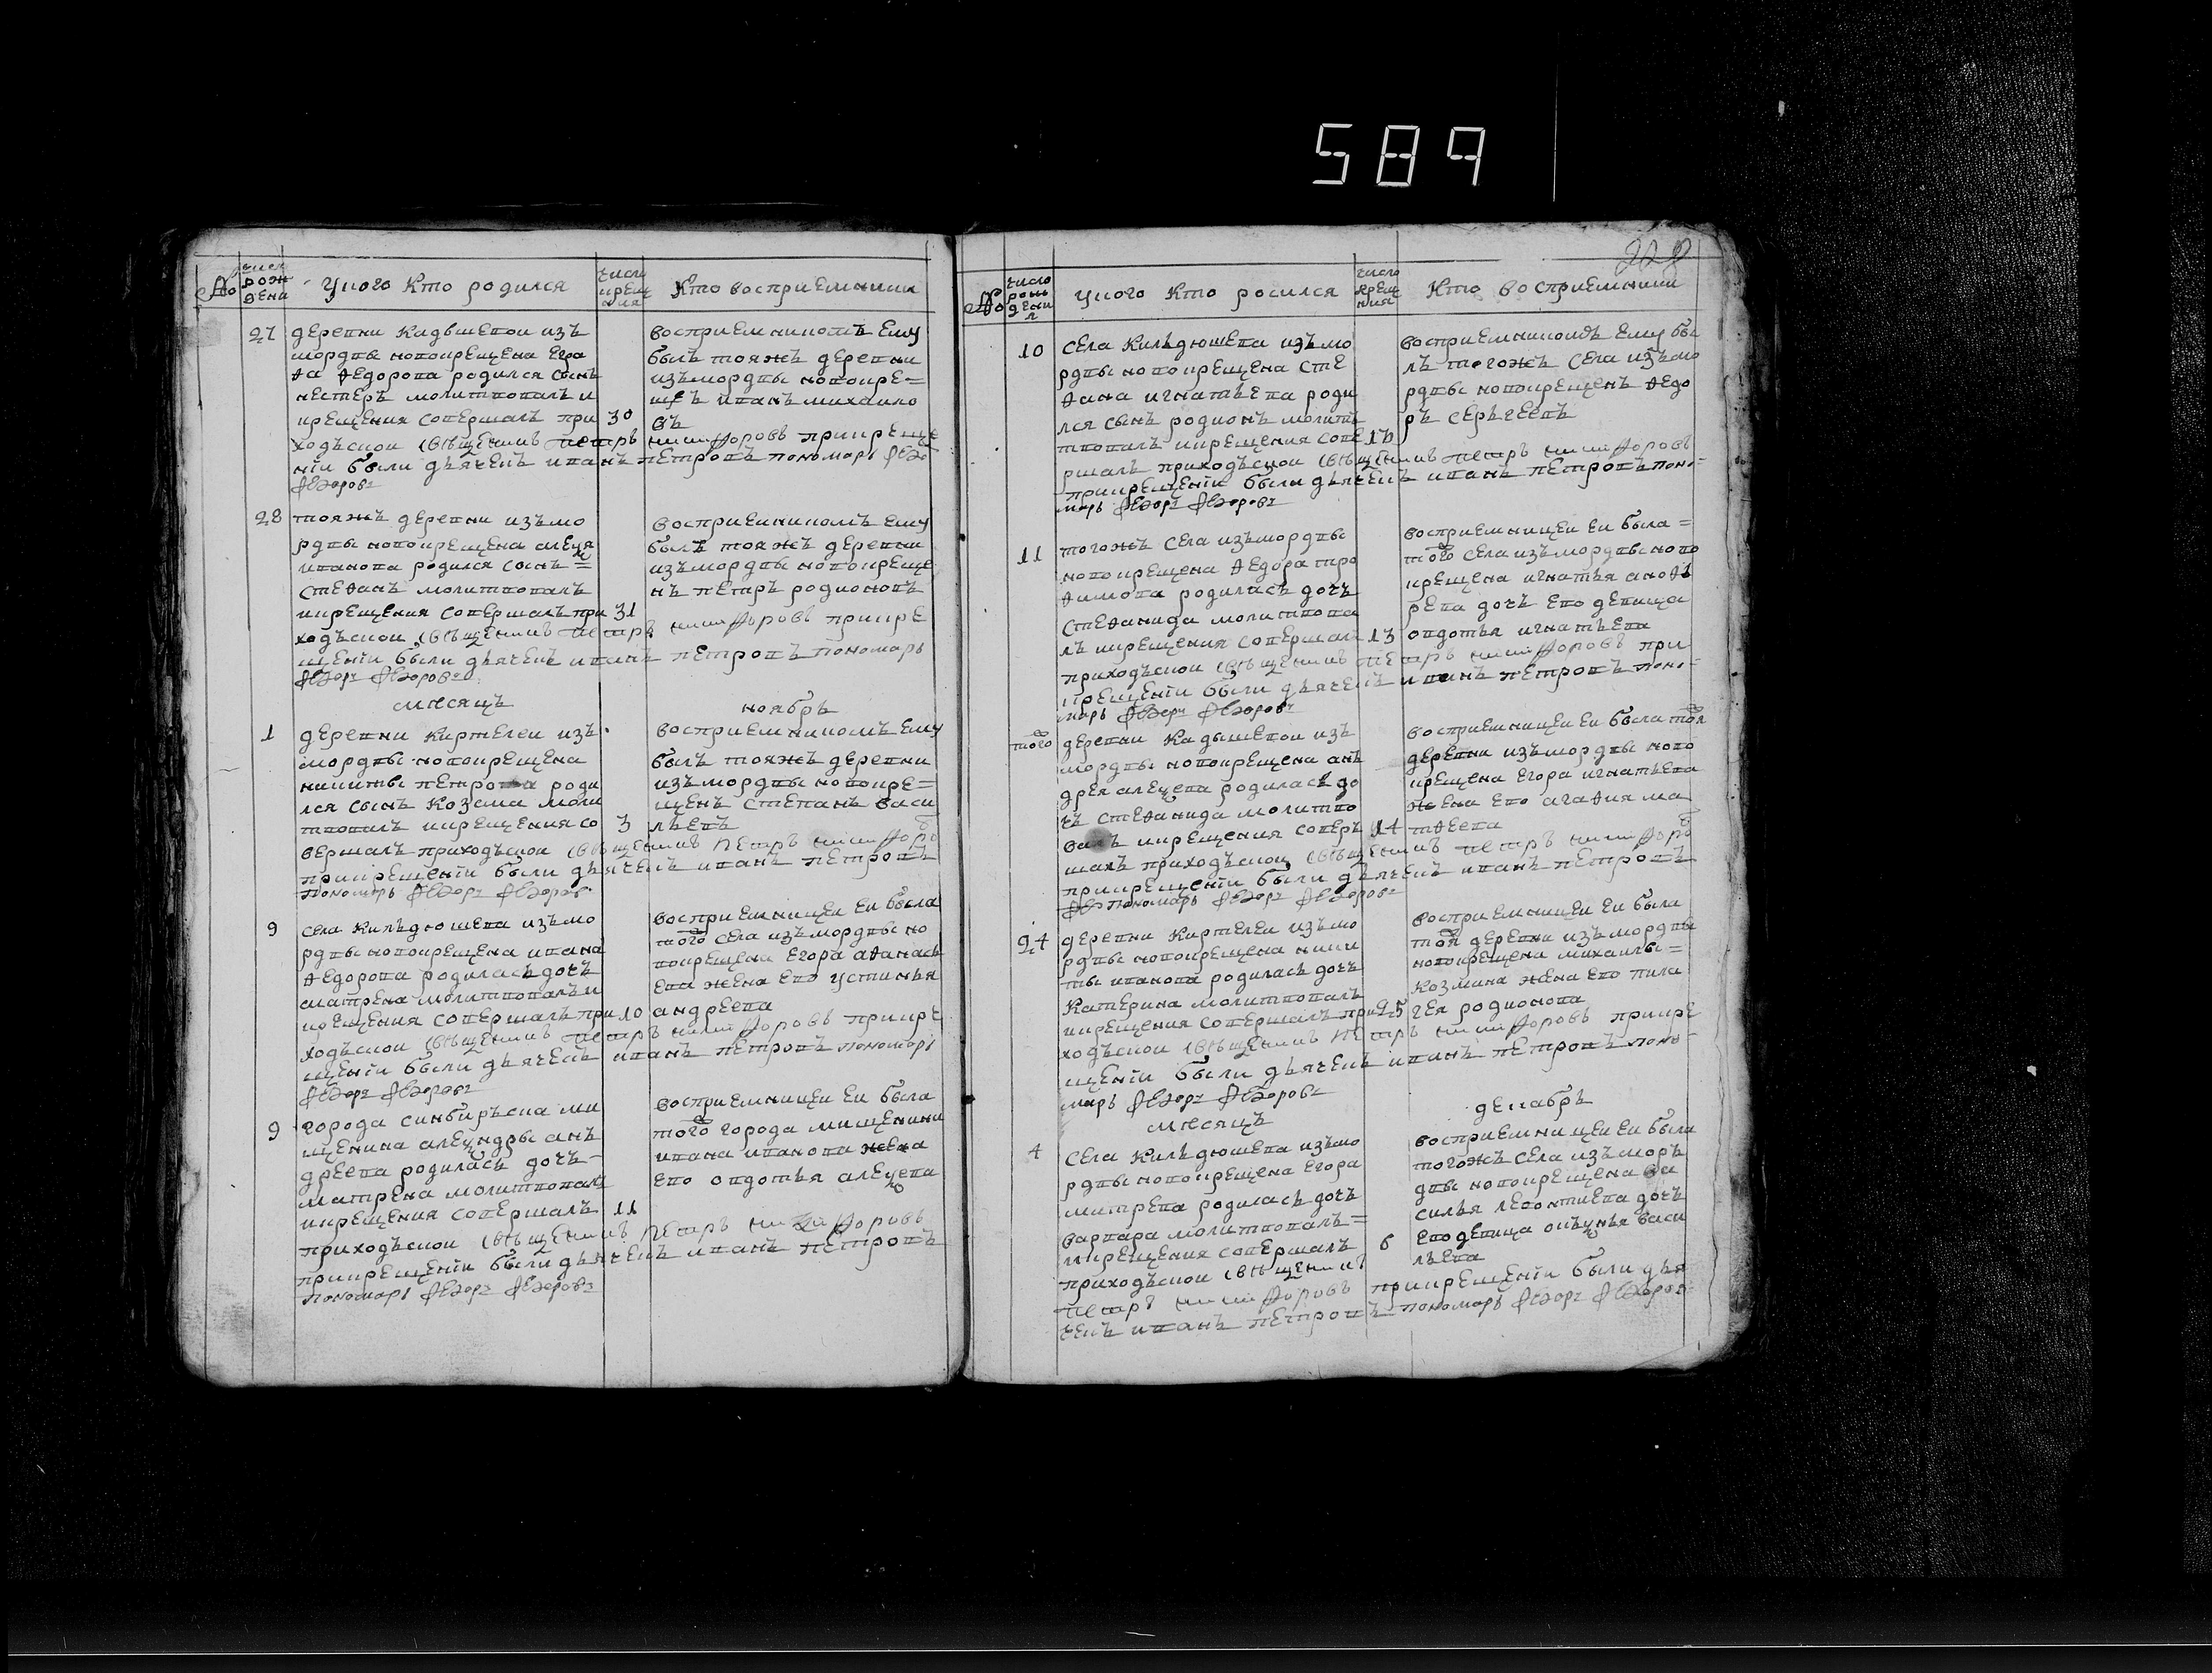 589
№
число рождени
У кого кто родился
число крещения
Кто восприемники
27
деревни Кадышевои изъ
мордвы новокрещена Егра
фа Ѳедорова родился сынъ
нестеръ молитвовалъ и
крещения совершалъ при 30
ходъскои священникъ петръ никифоровъ прикреще
нїи были дьячекъ иванъ петровъ пономарь
Ѳедоровъ
восприемникомъ ему
былъ тояжъ деревни
изъ мордвы новокре=
щенъ иванъ михаило
въ
28
тояжъ деревни изъ мо
рдвы новокрещена алеѯя
иванова родился сынъ =
стеѳанъ молитвовалъ
икрещения совершалъ при 31
ходъскои священникъ петръ никифоровъ прикре
щенїи были дьячекъ иванъ петровъ пономарь
Ѳедоръ Ѳедоровъ
восприемникомъ ему
былъ тояжъ деревни
изъ мордвы новокреще
нъ петръ родионовъ
месяцъ ноябрь
1
деревни Киртелеи изъ
мордвы новокрещена
никиты петрова роди
лся сынъ Козма моли
твовалъ икрещения со 3
вершалъ приходъскои священникъ петръ никифоро
прикрещенїи были дьячекъ иванъ петровъ
пономарь Ѳедоръ Ѳедоров
восприемникомъ ему
былъ тояжъ деревни
изъ мордвы новокре=
щенъ степанъ васи
льевъ
9
села Кильдюшева изъ мо
рдвы новокрещена ивана
Ѳедорова родилась дочь
матрена молитвовалъ и
крещения совершалъ при 10
ходъскои священникъ петръ никифоровъ прикре
щенїи были дьячекъ иванъ петровъ пономарь
Ѳедоръ Ѳедоровъ
восприемницеи еи была
того села изъ мордвы но
вокрещена Егора аѳанась
ева жена ево устинья
андреева
9
города синбиръска ми
щенина алеѯндры анъ
дреева родилась дочь
матрена молитвовалъ
икрещения совершалъ 11
приходъскои священникъ петръ никифоровъ
прикрещенїи были дьячекъ иванъ петровъ
пономарь Ѳедоръ Ѳедоровъ
восприемницеи еи была
того города мищенини
ивана иванова жена
ево овдотья алеѯева
№
число рожъ дени я
укого кто росился
число крещ ния
Кто восприемники
10
села Кильдюшева изъ мо
рдвы новокрещена сте
ѳана игнатьева роди
лся сынъ родионъ молит
твовалъ икрещения сове
ршалъ приходъскои священникъ петръ никифоровъ
прикрещенїи были дьячекъ иванъ петровъ поно=
марь Ѳедоръ Ѳедоровъ
восприемникомъ ему бы
лъ тогожъ села изъ мо
рдвы новокрещенъ Ѳедо
ръ серьгеевъ
11
тогожъ села изъ мордвы
новокрещена Ѳедора тро
ѳимова родилась дочь
стеѳанида молитвова
лъ икрещения совершал 13
приходъскои священникъ петръ никифоровъ при
крещенїи были дьячекъ иванъ петровъ поно=
марь Ѳедоръ Ѳедоровъ
восприемницеи еи была =
того села изъ мордвы ново
крещена игнатья
дочь ево девица
овдотья игнатьева
того
деревни Кадышевои изъ
мордвы новокрещена анъ
дрея алеѯева родилась до
чь стеѳанида молитво
валъ икрещения совер 14
шалъ приходъскои священникъ петръ никифоро
прикрещенїи были дьячекъ иванъ петровъ
пономарь Ѳедоръ Ѳедоровъ
восприемницеи еи была тоя
деревни изъ мордвы ново
крещена Егора игнатьева
жена ево агаѳия ма
твеева
24
деревни Киртелеи изъ мо
рдвы новокрещена ники
ты иванова родилась дочь
Катерина молитвовалъ
икрещения совершалъ при 25
ходъскои священникъ петръ никифоровъ прикре
щенїи были дьячекъ иванъ петровъ поно=
марь Ѳедоръ Ѳедоровъ
восприемницеи еи была
тоя деревни изъ мордвы
новокрещена михаилы =
козмина жена ево пила
гея родионова
месяцъ декабрь
4
села Кильдюшева изъ мо
рдвы новокрещена Егора
митрева родилась дочь
варвара молитвовалъ =
икрещения совершалъ 6
приходъскои священникъ
петръ никифоровъ прикрещенїи были дья
чекъ иванъ петровъ пономарь Ѳедоръ Ѳедоров
восприемницеи еи была
тогожъ села изъ моръ
двы новокрещена ва
силья леонтиева дочь
ево девица васи
льева